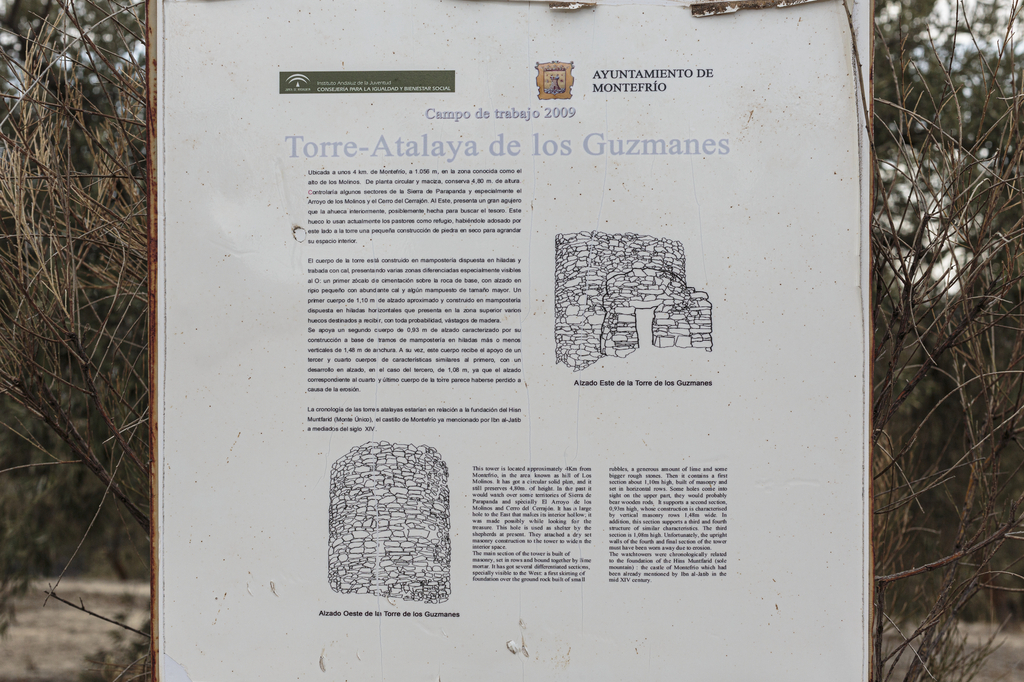 Instituto Andaluz de la Juventud
CONSEJERÍA PARA LA IGUALDAD Y BIENESTAR SOCIAL
AYUNTAMIENTO DE
MONTEFRÍO
Campo de trabajo 2009
Torre-Atalaya de los Guzmanes
Ubicada a unos 4 km. de Montefrío, a 1.056 m, en la zona conocida como el
alto de los Molinos. De planta circular y maciza, conserva 4,80 m. de altura.
Controlaría algunos sectores de la Sierra de Parapanda y especialmente el
Arroyo de los Molinos y el Cerro del Cerrajón. Al Este, presenta un gran agujero
que la ahueca interiormente, posiblemente hecha para buscar el tesoro. Este
hueco lo usan actualmente los pastores como refugio, habiéndole adosado por
este lado a la torre una pequeña construcción de piedra en seco para agrandar
su espacio interior.
El cuerpo de la torre está construido en mampostería dispuesta en hiladas y
trabada con cal, presentando varias zonas diferenciadas especialmente visibles
al O: un primer zócalo de cimentación sobre la roca de base, con alzado en
ripio pequeño con abundante cal y algún mampuesto de tamaño mayor. Un
primer cuerpo de 1,10 m de alzado aproximado y construido en mampostería
dispuesta en hiladas horizontales que presenta en la zona superior varios
huecos destinados a recibir, con toda probabilidad, vástagos de madera.
Se apoya un segundo cuerpo de 0,93 m de alzado caracterizado por su
construcción a base de tramos de mampostería en hiladas más o menos
verticales de 1,48 m de anchura. A su vez, este cuerpo recibe el apoyo de un
tercer y cuarto cuerpos de características similares al primero, con un
desarrollo en alzado, en el caso del tercero, de 1,08 m, ya que el alzado
correspondiente al cuarto y último cuerpo de la torre parece haberse perdido a
causa de la erosión.
La cronología de las torres atalayas estarían en relación a la fundación del Hisn
Muntfarid (Monte Único), el castillo de Montefrío ya mencionado por Ibn al-Jatib
a mediados del siglo XIV.
Alzado Este de la Torre de los Guzmanes
Alzado Oeste de la Torre de los Guzmanes
This tower is located approximately 4Km from
Montefrío, in the area known as hill of Los
Molinos. It has got a circular solid plan, and it
still preserves 4,80m. of height. In the past it
would watch over some territories of Sierra de
Parapanda and specially El Arroyo de los
Molinos and Cerro del Cerrajón. It has a large
hole to the East that makes its interior hollow; it
was made possibly while looking for the
treasure. This hole is used as shelter by the
shepherds at present. They attached a dry set
masonry construction to the tower to widen the
interior space.
The main section of the tower is built of
masonry, set in rows and bound together by lime
mortar. It has got several differentiated sections,
specially visible to the West: a first skirting of
foundation over the ground rock built of small
rubbles, a generous amount of lime and some
bigger rough stones. Then it contains a first
section about 1,10m high, built of masonry and
set in horizontal rows. Some holes come into
sight on the upper part, they would probably
bear wooden rods. It supports a second section,
0,93m high, whose construction is characterised
by vertical masonry rows 1,48m wide. In
addition, this section supports a third and fourth
structure of similar characteristics. The third
section is 1,08m high. Unfortunately, the upright
walls of the fourth and final section of the tower
must have been worn away due to erosion.
The watchtowers were chronologically related
to the foundation of the Hins Muntfarid (sole
mountain) : the castle of Montefrío which had
been already mentioned by Ibn al-Jatib in the
mid XIV century.